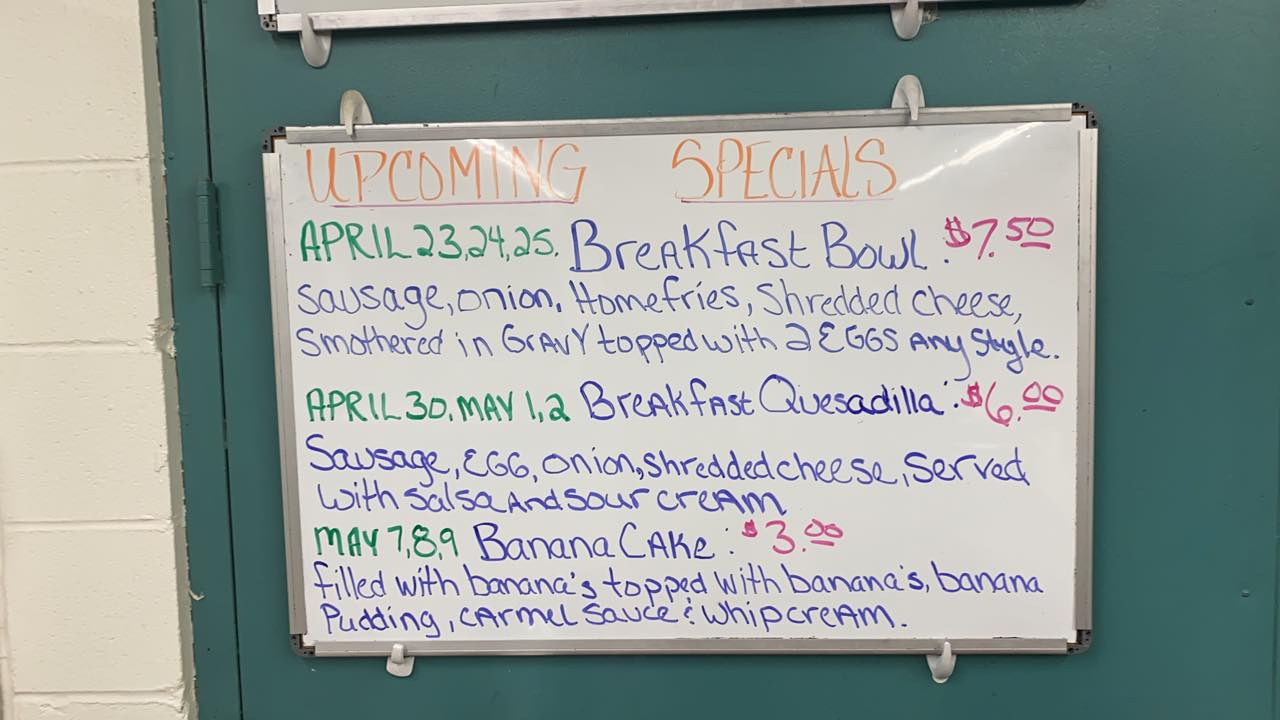 UPCOMING SPECIALS
APRIL 23,24,25. Breakfast Bowl: $7.50
Sausage, onion, Homefries, Shredded cheese,
Smothered in Gravy topped with 2 EGGS Any Style.
APRIL 30, MAY 1,2 Breakfast Quesadilla: $6.00
Sausage, EGG, onion, shredded cheese, Served
with salsa And sour cream
MAY 7,8,9 Banana Cake: $3.00
filled with banana's topped with banana's, banana
Pudding, carmel sauce & whipcream.